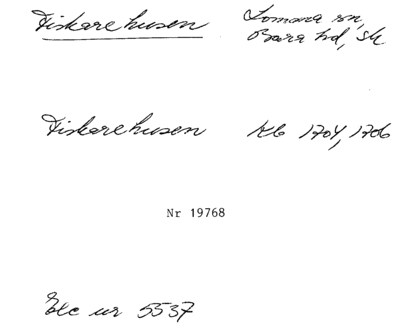 Fiskarehusen Lomma sn,
Bara hd, Sk
Fiskarehusen Kb 1704, 1706
Nr 19768
Elc ur 5537